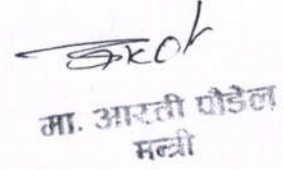 मा. आरती पौडेल
मन्त्री